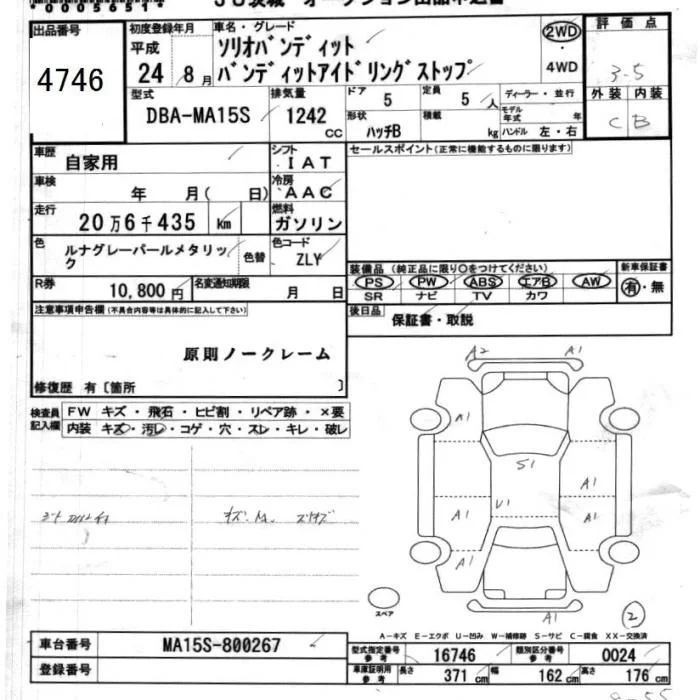 000056514
出品番号
4746
初度登録年月
平成
24 8月
車名・グレード
ソリオバンディット
バンディットアイドリングストップ
2WD
4WD
評価点
3.5
外装 内装
C B
型式
DBA-MA15S
排気量
1242
CC
ドア 5
定員 5人
形状 ハッチB
積載 kg
ディーラー・並行
モデル年式 年
ハンドル 左・右
車歴
自家用
シフト
IAT
車検
年 月( 日)
冷房
AAC
走行
20万6千435 km
燃料
ガソリン
色
ルナグレーパールメタリッ
ク
色替
色コード
ZLY
R券
10,800円
名変通知期限
月 日
セールスポイント(正常に機能するものに限ります)
装備品 (純正品に限り○をつけてください)
PS PW ABS エアB AW
SR ナビ TV カワ
新車保証書
有・無
後日品
保証書・取説
注意事項申告欄(不具合内容等は具体的に記入して下さい)
原則ノークレーム
修復歴 有〔箇所 〕
検査員
記入欄
FW キズ・飛石・ヒビ割・リペア跡・×要
内装 キズ・汚レ・コゲ・穴・スレ・キレ・破レ
A2 A1
A1
S1
A1
A1 U1 A1
A1
A1
スペア
2
A-キズ E-エクボ U-凹み W-補修跡 S-サビ C-腐食 XX-交換済
車台番号
MA15S-800267
登録番号
型式指定番号
参考
16746
類別区分番号
参考
0024
車庫証明用
参考
長さ 371 cm
幅 162 cm
高さ 176 cm